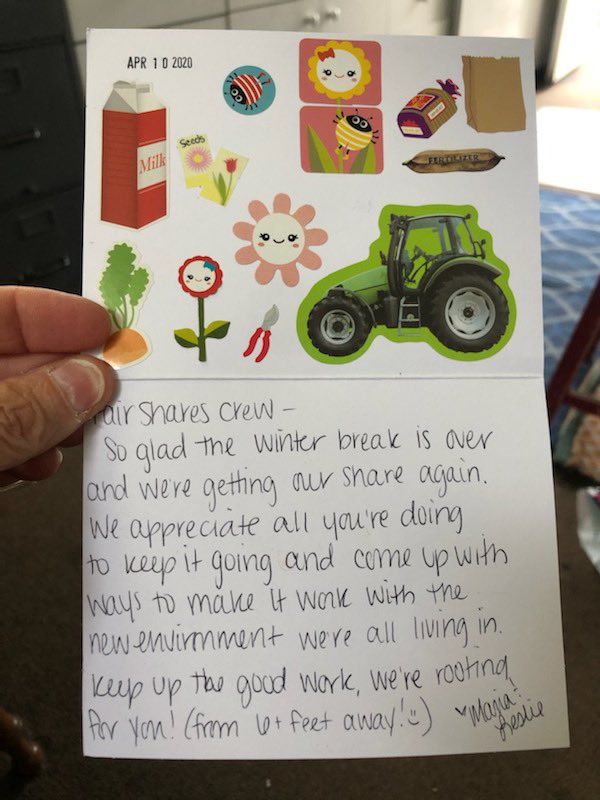 APR 10 2020
Milk
Seeds
FERTILIZER
Fair Shares Crew –
So glad the winter break is over
and we're getting our share again.
We appreciate all you're doing
to keep it going and come up with
ways to make it work with the
new envirnment we're all living in.
Keep up the good work, we're rooting
for you! (from 6+ feet away! :)
Leslie